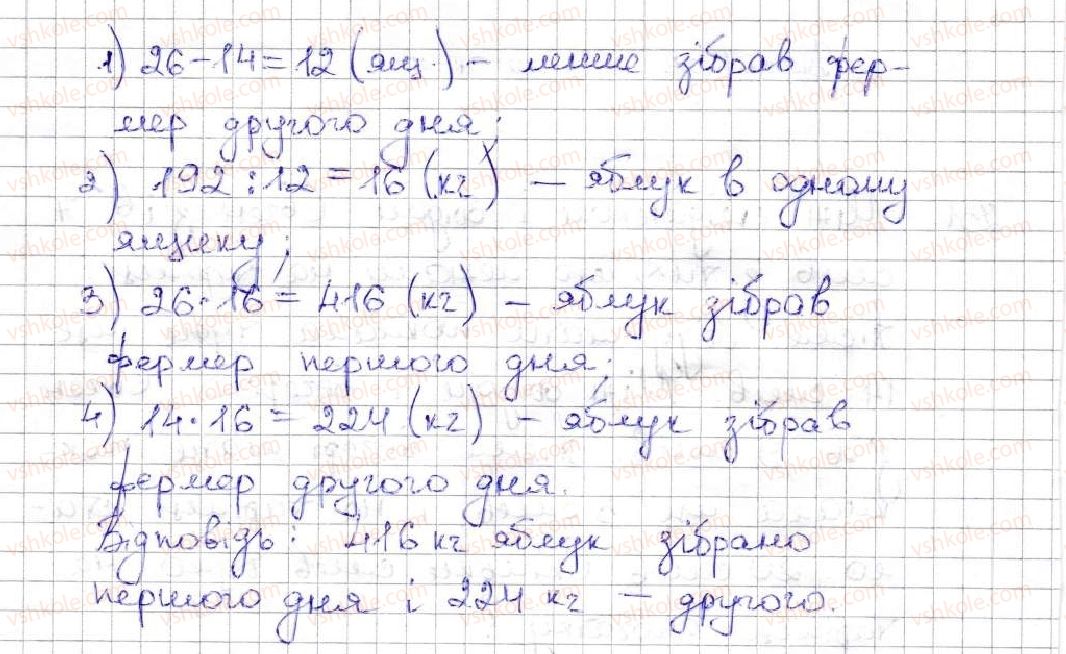 1) 26-14=12 (ящ.) - менше зібрав фер-
мер другого дня;
2) 192:12=16 (кг) - яблук в одному
ящику;
3) 26·16=416 (кг) - яблук зібрав
фермер першого дня;
4) 14·16=224 (кг) - яблук зібрав
фермер другого дня.
Відповідь: 416 кг яблук зібрано
першого дня і 224 кг - другого.